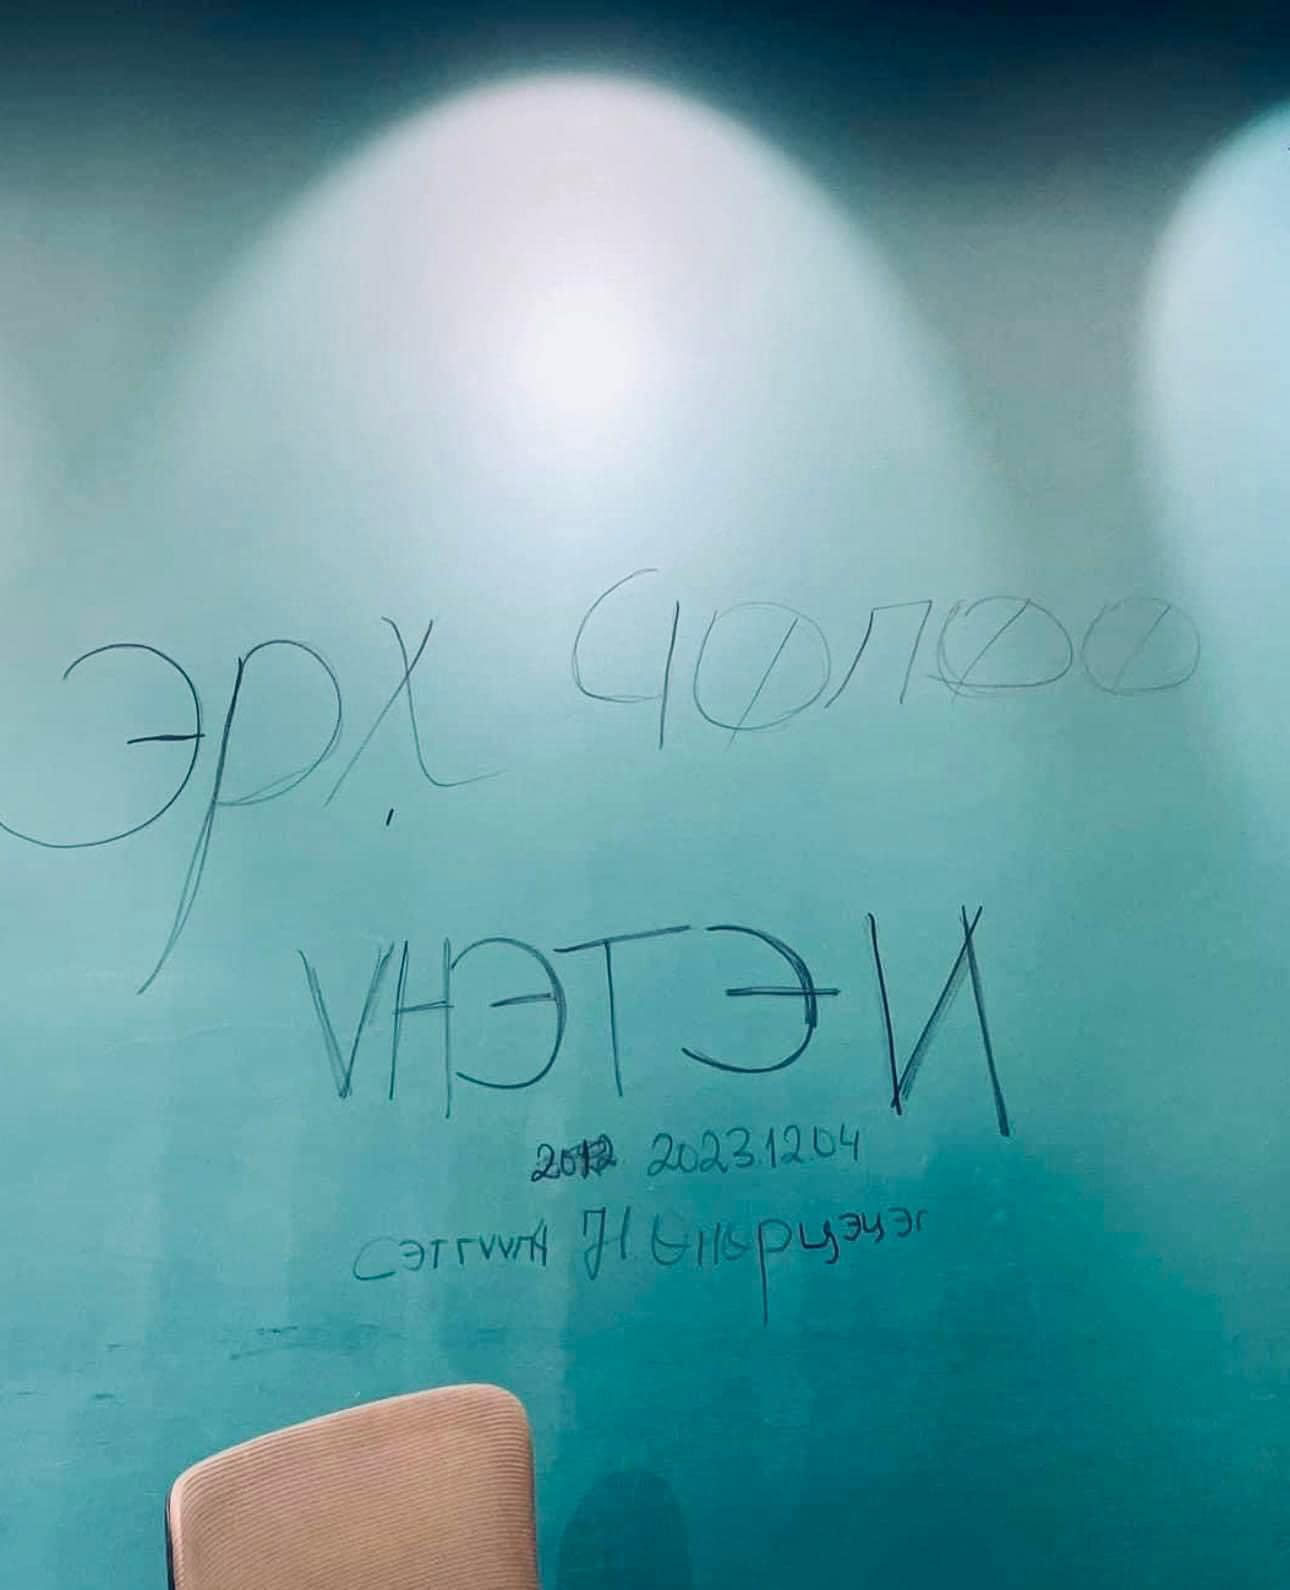 эрх чөлөө
ҮНЭТЭЙ
2012 2023.12.04
Сэтгүүлч Н. Өнөрцэцэг